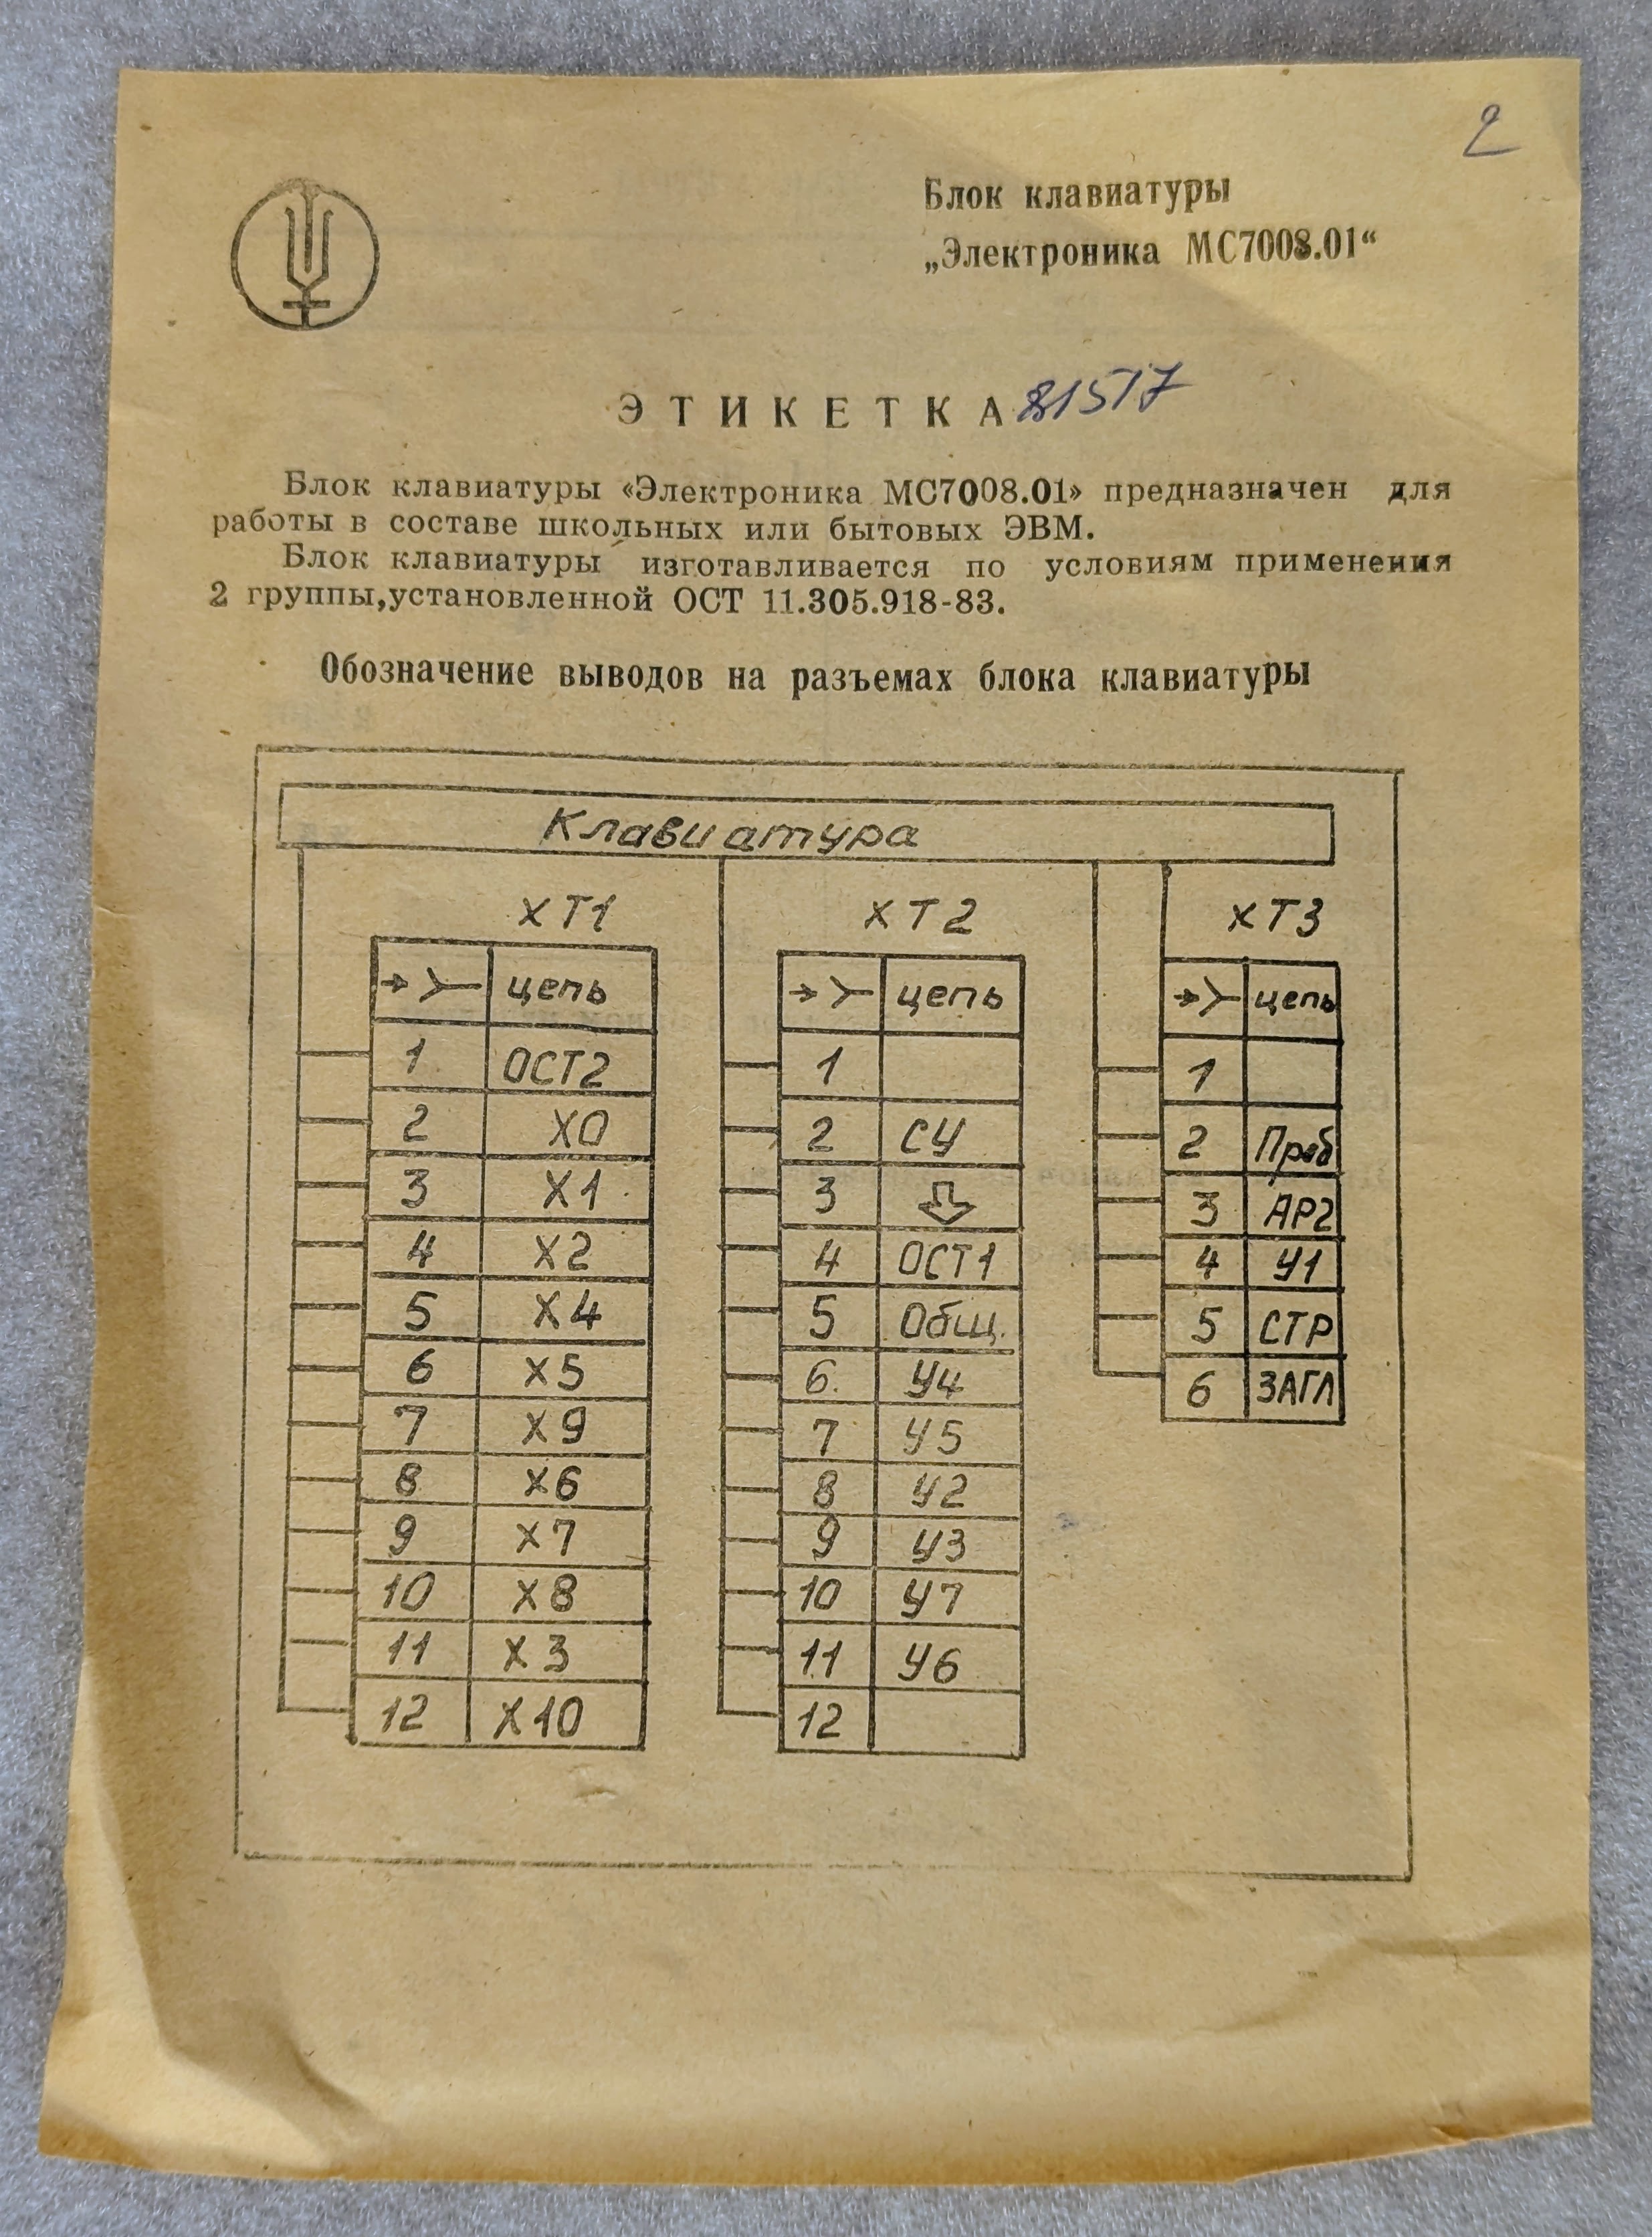 2
Блок клавиатуры
„Электроника МС7008.01“
ЭТИКЕТКА 81517
Блок клавиатуры «Электроника МС7008.01» предназначен для
работы в составе школьных или бытовых ЭВМ.
Блок клавиатуры изготавливается по условиям применения
2 группы,установленной ОСТ 11.305.918-83.
Обозначение выводов на разъемах блока клавиатуры
Клавиатура
ХТ1
цепь
1 ОСТ2
2 Х0
3 Х1
4 Х2
5 Х4
6 Х5
7 Х9
8 Х6
9 Х7
10 Х8
11 Х3
12 Х10
ХТ2
цепь
1
2 СУ
3
4 ОСТ1
5 Общ.
6. У4
7 У5
8 У2
9 У3
10 У7
11 У6
12
ХТ3
цепь
1
2 Проб
3 АР2
4 У1
5 СТР
6 ЗАГЛ